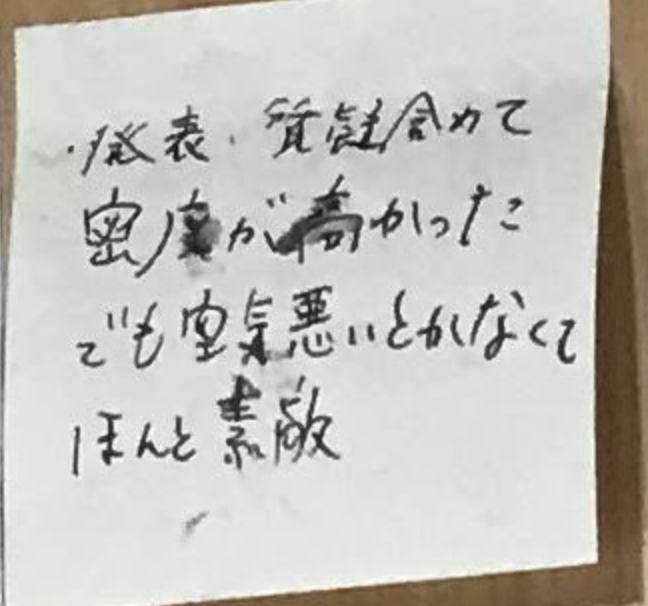 ・発表、質疑含めて
密度が高かった
でも空気悪いとかなくて
ほんと素敵